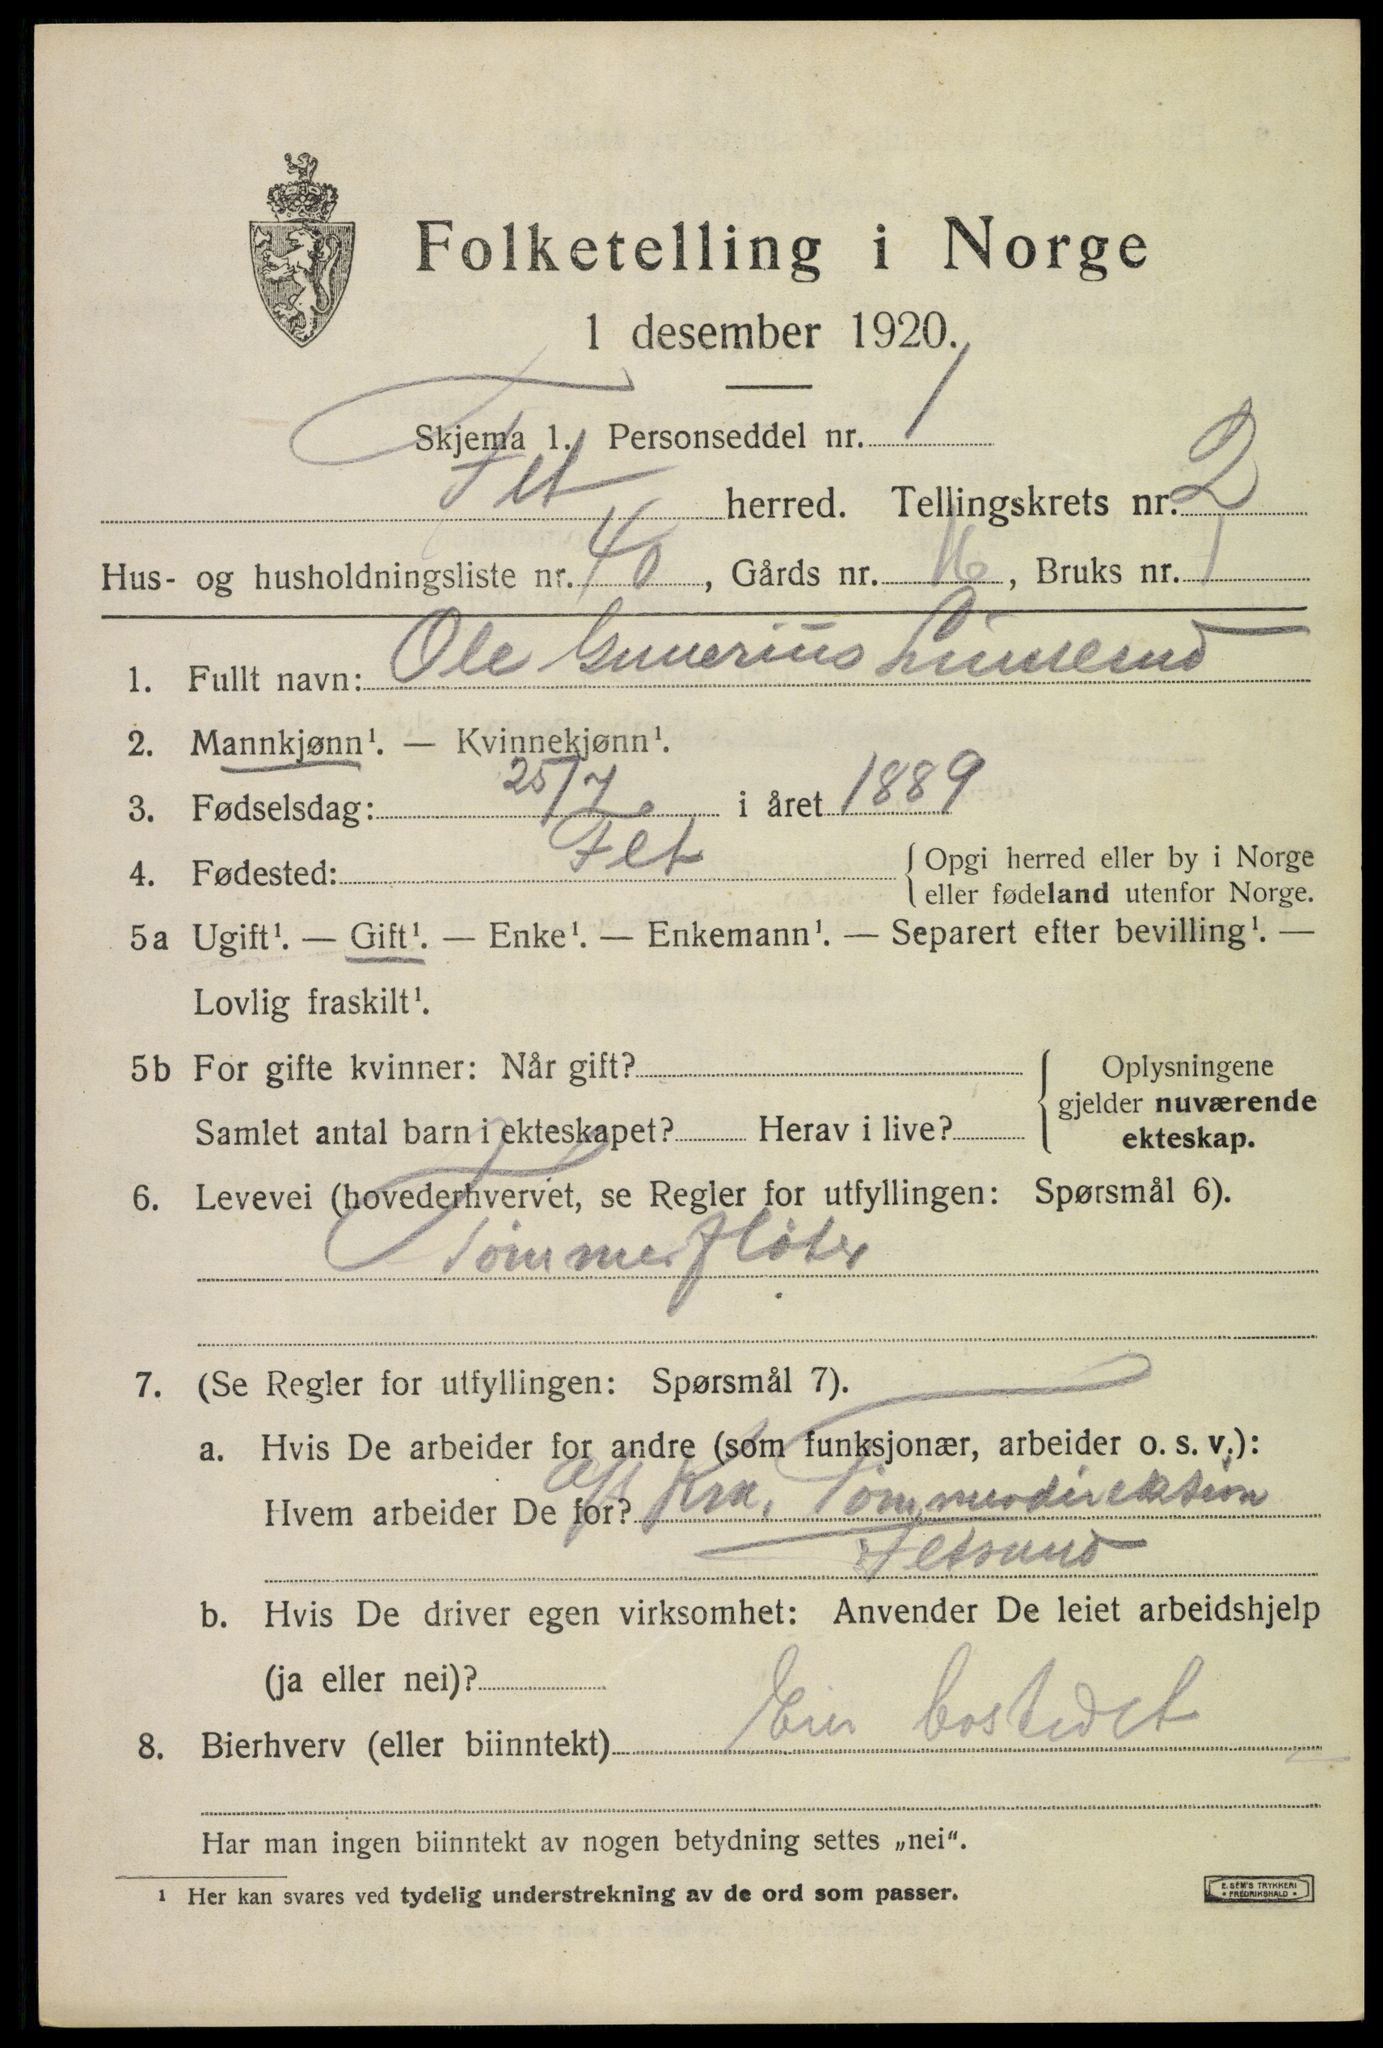 Folketelling i Norge
1 desember 1920.
Skjema 1. Personseddel nr. 1
Fet herred. Tellingskrets nr. 2
Hus- og husholdningsliste nr. 40, Gårds nr. 16, Bruks nr. 1
1. Fullt navn: Ole Gunerius
2. Mannkjønn¹. — Kvinnekjønn¹.
3. Fødselsdag: 25/7 i året 1889
4. Fødested: Fet
Opgi herred eller by i Norge
eller fødeland utenfor Norge.
5a Ugift¹. — Gift¹. — Enke¹. — Enkemann¹. — Separert efter bevilling¹. —
Lovlig fraskilt¹.
5b For gifte kvinner: Når gift?
Samlet antal barn i ekteskapet? Herav i live?
Oplysningene
gjelder nuværende
ekteskap.
6. Levevei (hovederhvervet, se Regler for utfyllingen: Spørsmål 6).
Tømmerfløter
7. (Se Regler for utfyllingen: Spørsmål 7).
a. Hvis De arbeider for andre (som funksjonær, arbeider o. s. v.):
Hvem arbeider De for? A/S Kra. Tømmerdirektion
Fetsund
b. Hvis De driver egen virksomhet: Anvender De leiet arbeidshjelp
(ja eller nei)?
8. Bierhverv (eller biinntekt) Eier bostedet
Har man ingen biinntekt av nogen betydning settes „nei“.
¹ Her kan svares ved tydelig understrekning av de ord som passer.
E. SEM'S TRYKKERI
• FREDRIKSHALD •